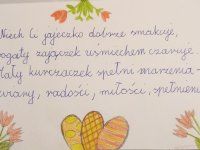 Niech Ci jajeczko dobrze smakuje,
bogaty zajączek uśmiechem czaruje.
Mały kurczaczek spełni marzenia -
wiary, radości, miłości, spełnienia